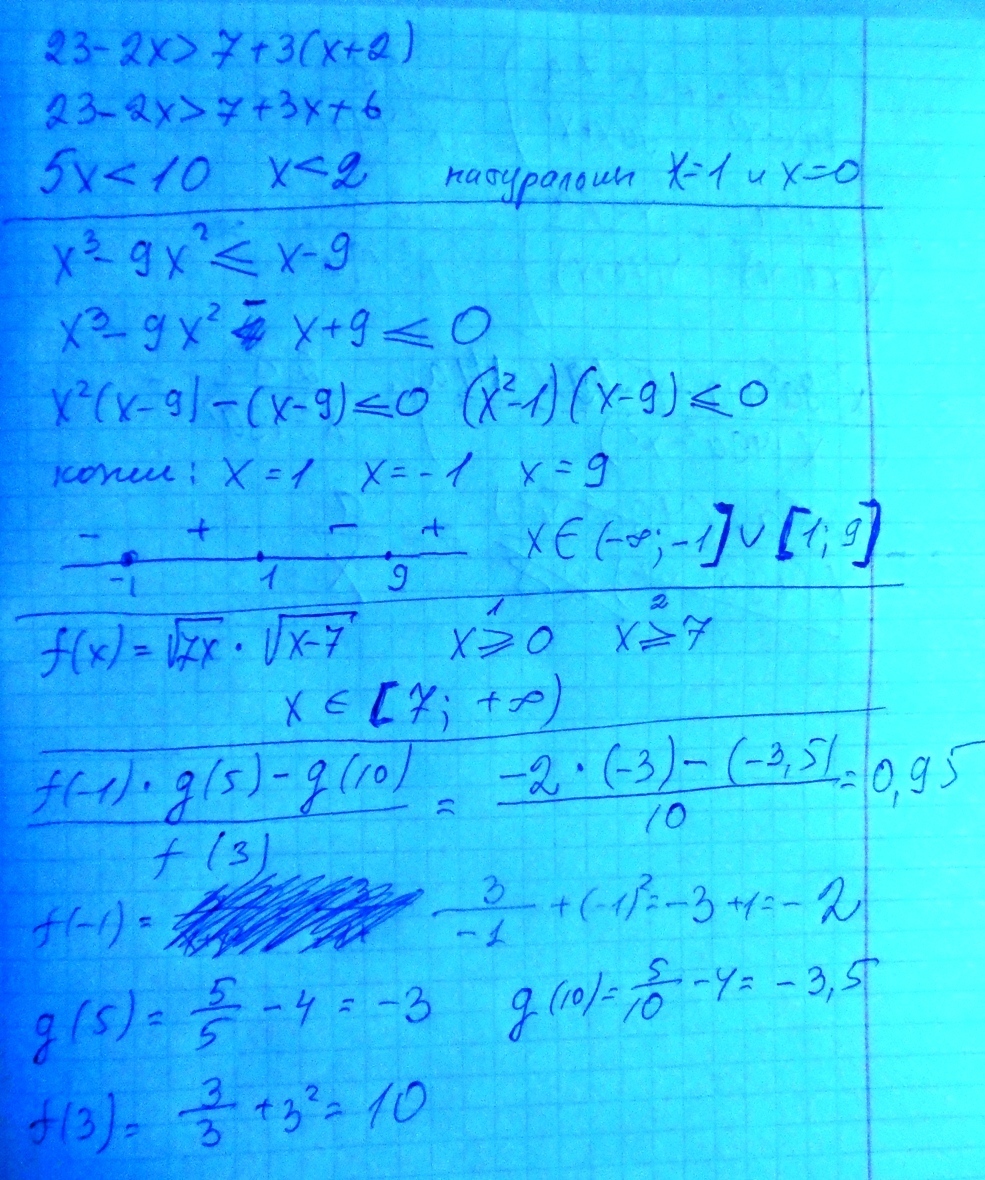 23-2x>7+3(x+2)
23-2x>7+3x+6
5x<10 x<2 натуральны x=1 и x=0
x³-9x²⩽x-9
x³-9x²-x+9⩽0
x²(x-9)-(x-9)⩽0 (x²-1)(x-9)⩽0
x=1 x=-1 x=9
- + - + x∈(-∞;-1]∪[1;9]
-1 1 9
f(x)=√7x·√x-7 1 x⩾0 2 x⩾7
x∈[7;+∞)
f(-1)·g(5)-g(10) / f(3) = -2·(-3)-(-3,5) / 10 = 0,95
f(-1)= 3/-1 +(-1)²=-3+1=-2
g(5)= 5/5 -4=-3 g(10)= 5/10 -4=-3,5
f(3)= 3/3 +3²=10